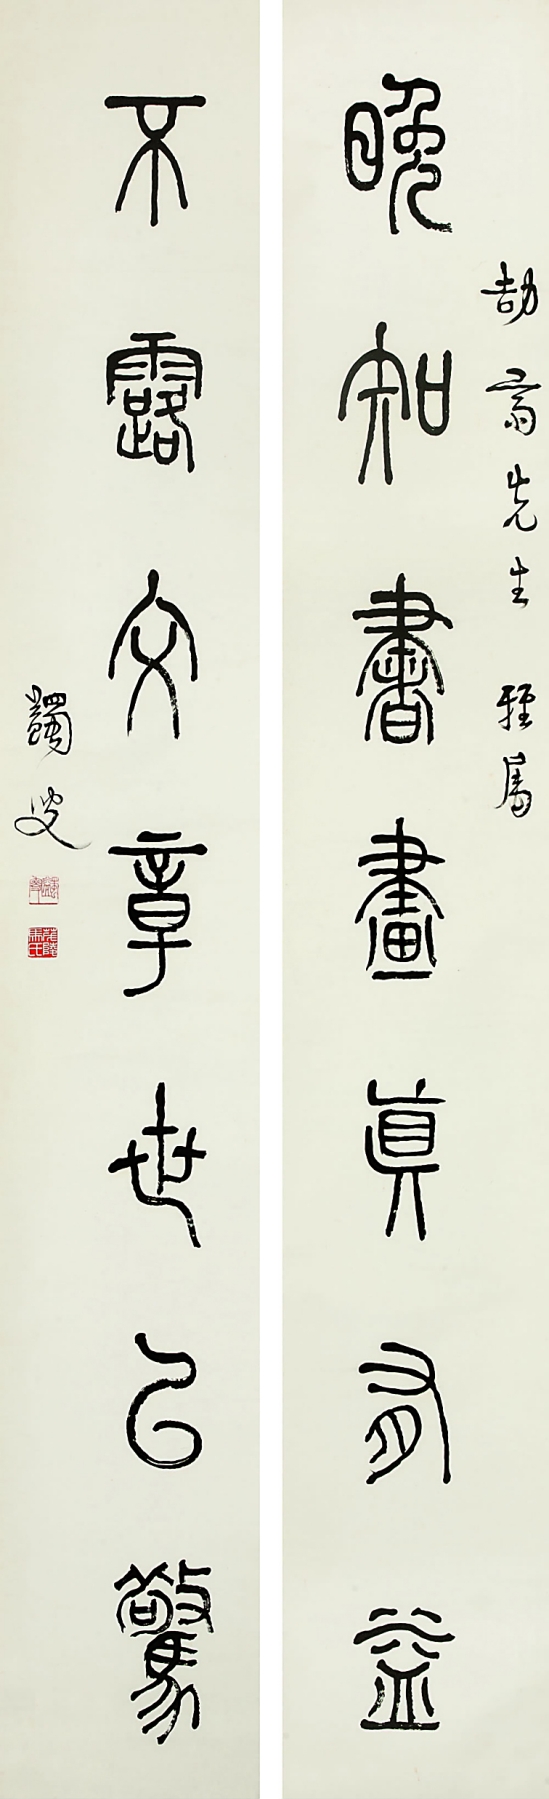 晚知書畫真有益
劼翁先生 雅屬
不露文章世已驚
蠲叟